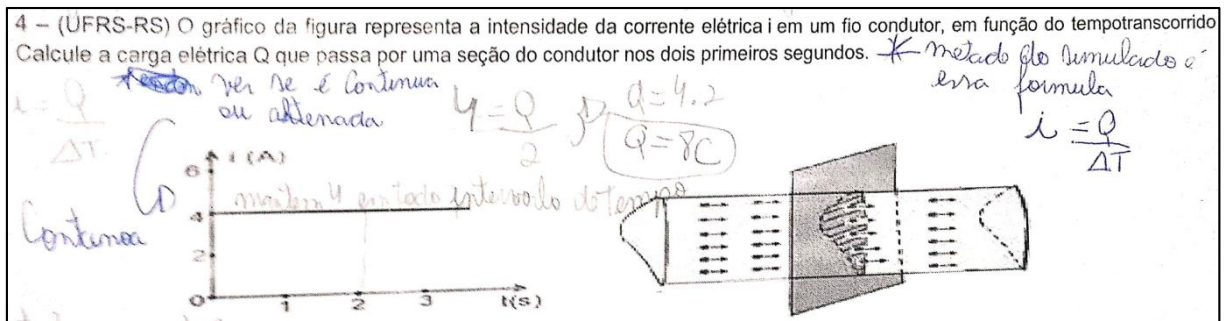 4 – (UFRS-RS) O gráfico da figura representa a intensidade da corrente elétrica i em um fio condutor, em função do tempotranscorrido
Calcule a carga elétrica Q que passa por uma seção do condutor nos dois primeiros segundos. * metade do simulado é
essa formula
i = Q
ΔT
ver se é Continua
ou alternada
i = Q
ΔT
4 = Q
2
Q=4.2
Q=8C
Continua
i (A)
6
4
2
0
1
2
3
t(s)
mantem 4 em todo intervalo do tempo